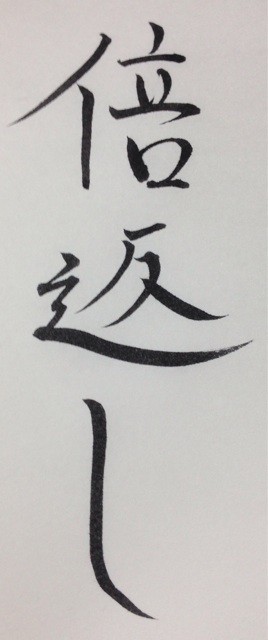 倍返し